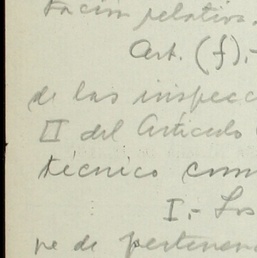 tación relativa.
Art. (f).-
de las inspecc
II del Artículo
técnico com
I.- Los
pe de pertenen